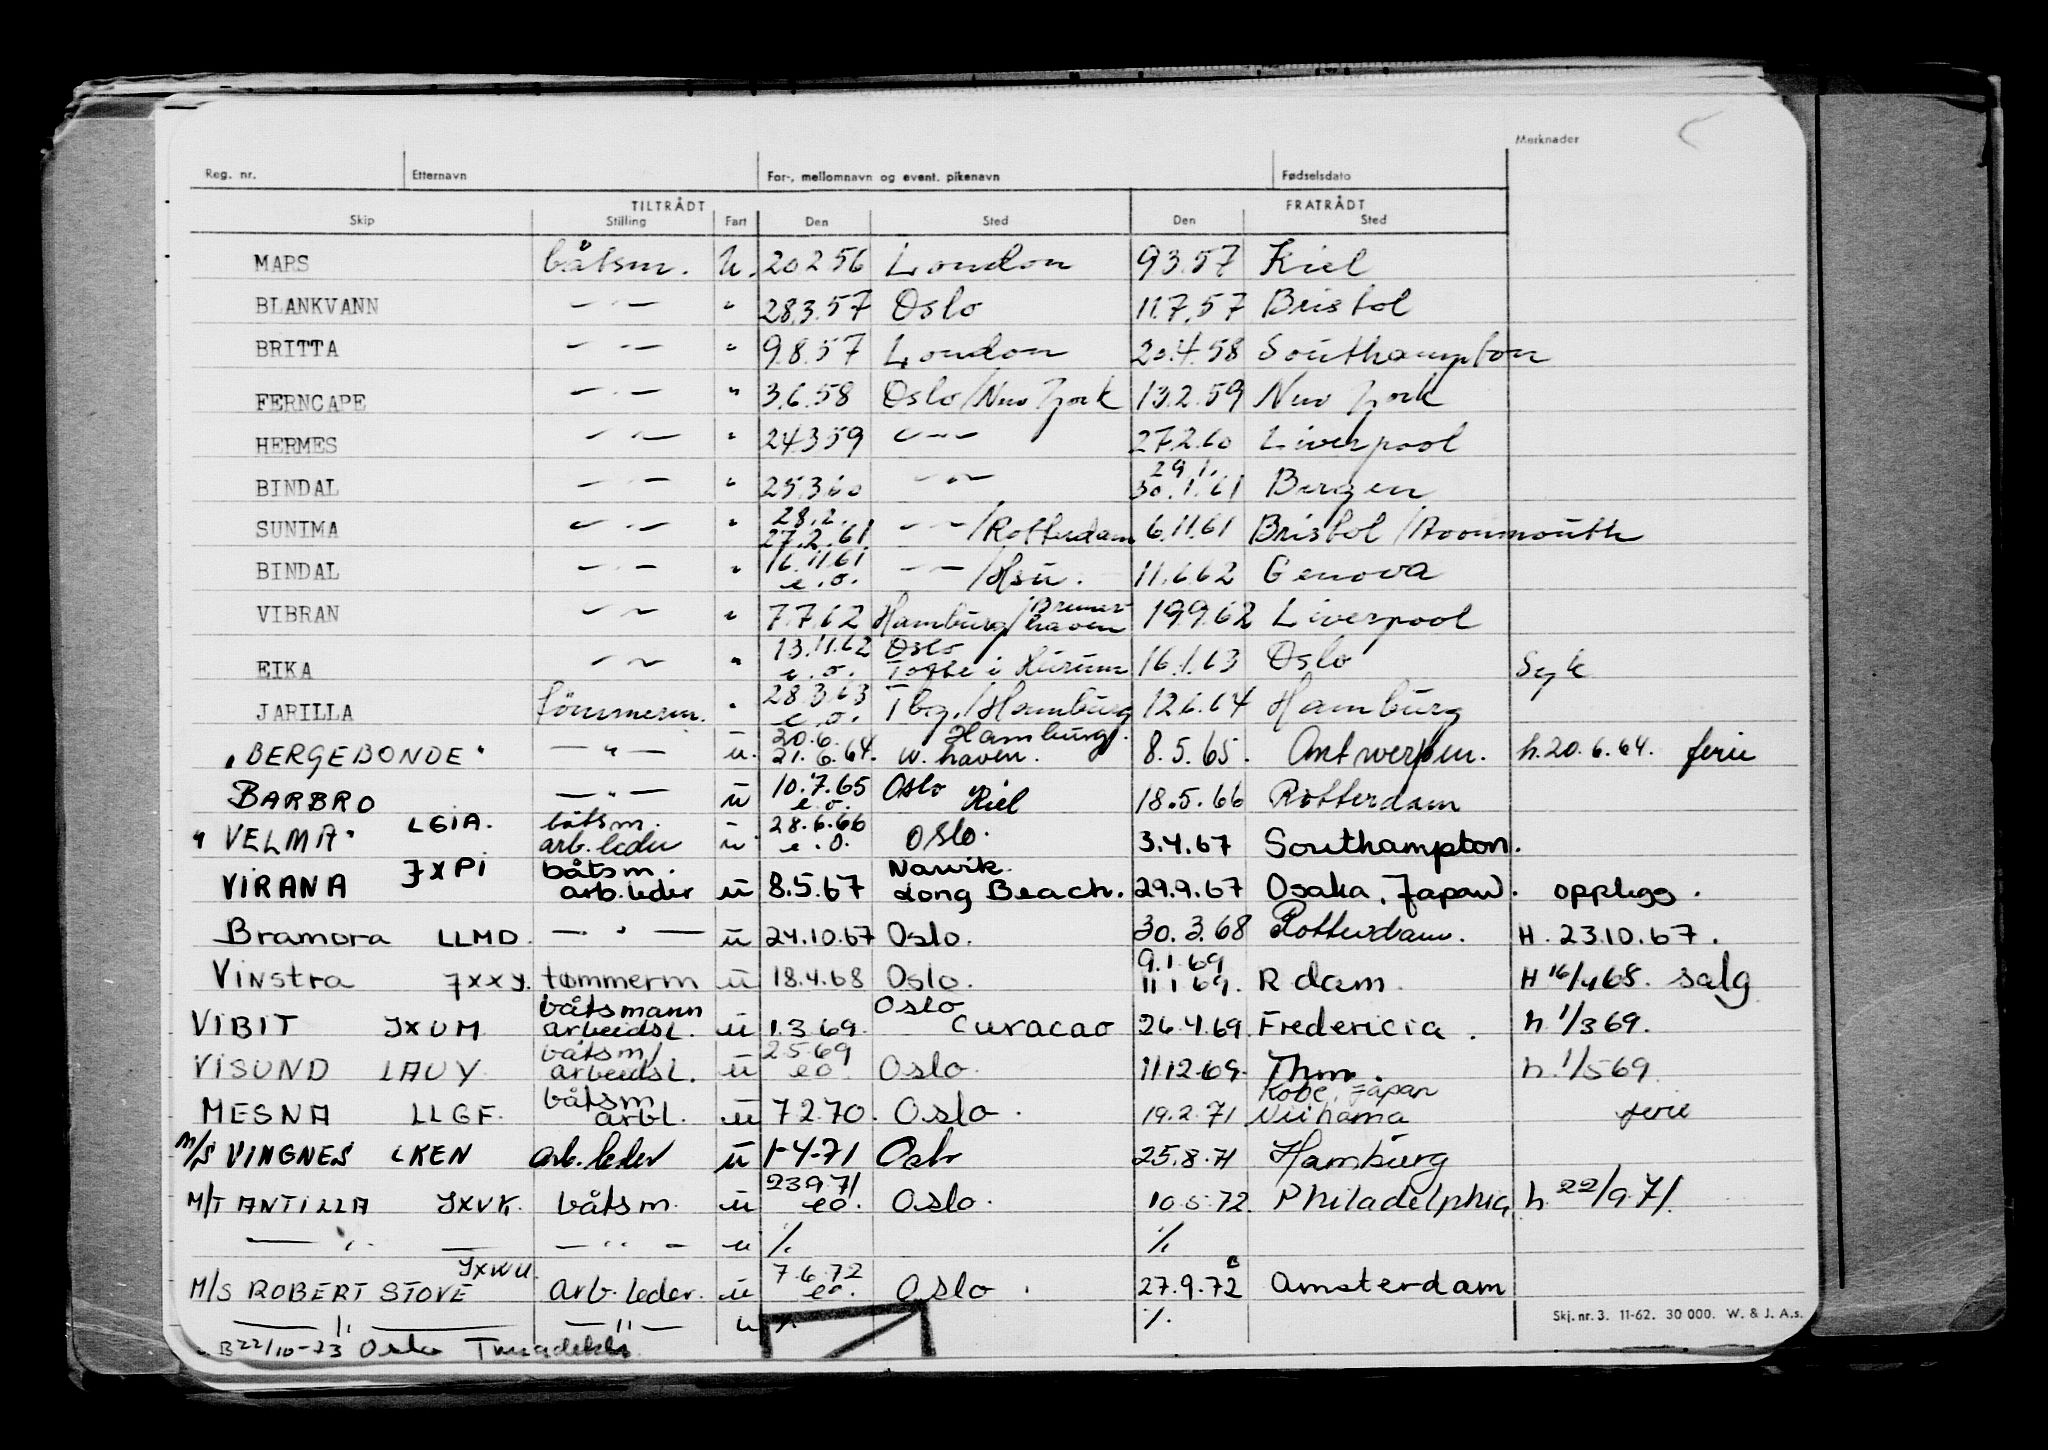 Merknader
Reg. nr. Etternavn For-, mellomnavn og event. pikenavn Fødselsdato
TILTRÅDT FRATRÅDT
Skip Stilling Fart Den Sted Den Sted
MARS båtsm. u. 20.2.56 London 9.3.57 Kiel
BLANKVANN — " — " 28.3.57 Oslo 11.7.57 Bristol
BRITTA — " — " 9.8.57 London 20.4.58 Southampton
FERNCAPE — " — " 3.6.58 Oslo/New York 13.2.59 New York
HERMES — " — " 24.3.59 — " — 27.2.60 Liverpool
29.1.
BINDAL — " — " 25.3.60 — " — 30.1.61 Bergen
28.2.
SUNIMA — " — " 27.2.61 — " —/Rotterdam 6.11.61 Bristol/Avonmouth
16.11.61
BINDAL — " — " e.o. — " —/Hsu. 11.6.62 Genova
VIBRAN — " — " 7.7.62 Hamburg/Bremerhaven 19.9.62 Liverpool
13.11.62 Oslo
EIKA — " — " e.o. Tofte i Hurum 16.1.63 Oslo Syk
28.3.63
JARILLA tömmerm. " e.o. Tbg./Hamburg 12.6.64 Hamburg
20.6. Hamburg.
"BERGEBONDE" — " — u. 21.6.64. W.haven. 8.5.65. Antwerpen. h.20.6.64. ferie
10.7.65 Oslo
BARBRO — " — u e.o. Kiel 18.5.66 Rotterdam
LGIA. båtsm. 28.6.66
"VELMA" arb.leder u e.o. Oslo. 3.4.67 Southampton.
JXPI båtsm. Narvik
VIRANA arb.leder u 8.5.67 Long Beach. 29.9.67 Osaka, Japan. opplegg.
Bramora LLMD. — " — u 24.10.67 Oslo. 30.3.68 Rotterdam. H. 23.10.67.
9.1.69
Vinstra JXXY. tømmerm u 18.4.68 Oslo. 11.1.69. R dam. H 16/4 68. salg
båtsmann Oslo
VIBIT JXUM arbeidsl. u 1.3.69. Curacao 26.4.69 Fredericia. h. 1/3 69.
båtsm/ 2.5.69
VISUND LAUY arbeidsl. u eo. Oslo. 11.12.69. Thm. h. 1/5 69.
båtsm Kobe, Japan
MESNA LLGF. arbl. u 7.2.70. Oslo. 19.2.71 Niihama ferie
M/S VINGNES LKEN arb.leder u 1-4-71 Oslo 25.8.71 Hamburg
23.9.71
M/T ANTILLA JXVK. båtsm. u eo. Oslo. 10.5.72. Philadelphia h. 22/9.71.
— " — — " — u ./. ./.
JXWU. 7.6.72
M/S ROBERT STOVE arb.leder. u eo. Oslo. 27.9.72 Amsterdam
— " — — " — u ./. ./.
B 22/10-73 Oslo
Skj. nr. 3. 11-62. 30 000. W. & J. A.s.